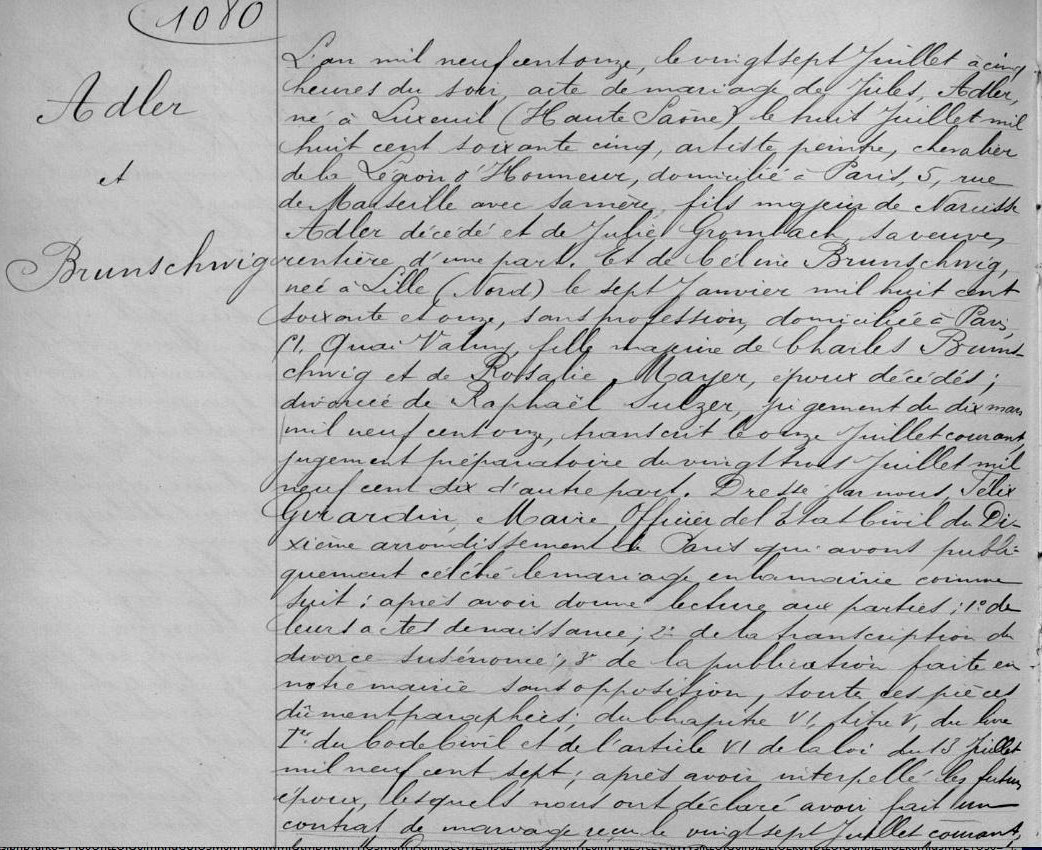 1080
Adler
et
Brunschwig
L'an mil neuf cent onze, le vingt sept Juillet à cinq
heures du soir, acte de mariage de Jules, Adler,
né à Luxeuil (Haute Saône) le huit Juillet mil
huit cent soixante cinq, artiste peintre, chevalier
de la Légion d'Honneur, domicilié à Paris, 5, rue
de Marseille avec sa mère, fils majeur de Narcisse
Adler décédé et de Julie Grombach, sa veuve,
rentière, d'une part. Et de Céline Brunschwig,
née à Lille (Nord) le sept Janvier mil huit cent
soixante et onze, sans profession, domiciliée à Paris,
Quai Valmy, fille majeure de Charles Bruns-
chwig et de Rosalie Mayer, époux décédés;
divorcée de Raphaël Sulzer, jugement du dix mars
mil neuf cent onze, transcrit le onze Juillet courant
jugement préparatoire du vingt trois Juillet mil
neuf cent dix d'autre part. Dressé par nous, Félix
Girardin, Maire, Officier de l'Etat Civil du Di-
xième arrondissement de Paris qui avons publi-
quement célébré le mariage en la mairie comme
suit: après avoir donné lecture aux parties: 1° de
leurs actes de naissance; 2° de la transcription du
divorce susénoncé; 3° de la publication faite en
notre mairie sans opposition, toutes ces pièces
dûment paraphées; du Chapitre VI, titre V, du livre
Ier du Code Civil et de l'article VI de la loi du 13 Juillet
mil neuf cent sept; après avoir interpellé les futurs
époux, lesquels nous ont déclaré avoir fait un
contrat de mariage reçu le vingt sept Juillet courant,